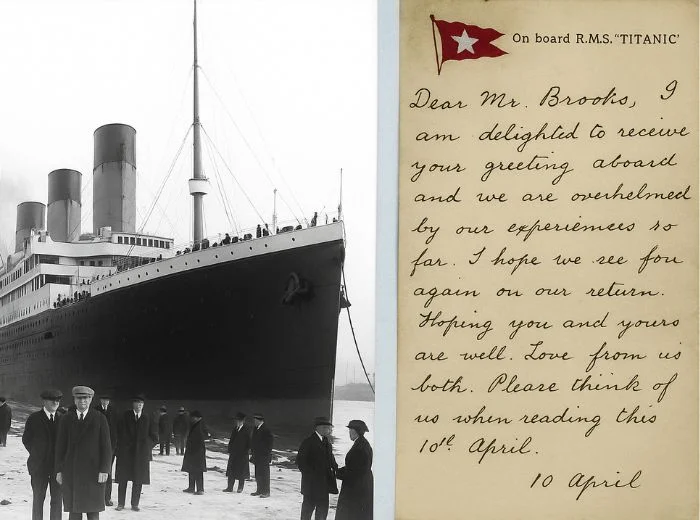 On board R.M.S. "TITANIC'
Dear Mr. Brooks, I
am delighted to receive
your greeting aboard
and we are overhelmed
by our experiemces so
far. I hope we see fou
again on our return.
Hoping you and yours
are well. Love from us
both. Please think of
us when reading this
10th April.
10 April